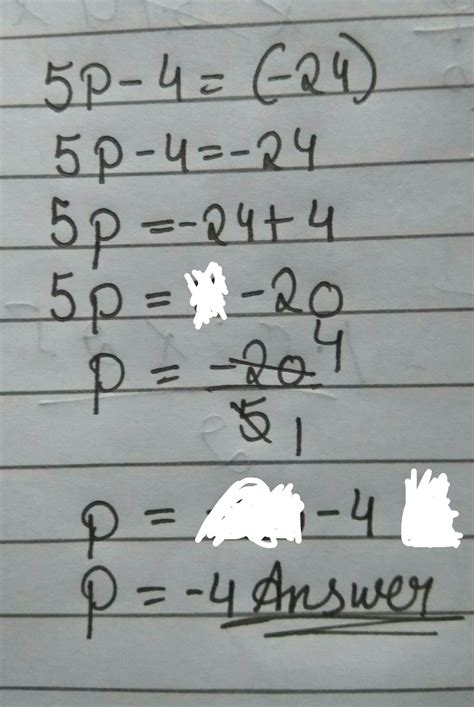 5p - 4 = (-24)
5p - 4 = -24
5p = -24 + 4
5p = -20
p = -20/5 4 1
p = -4
p = -4 Answer